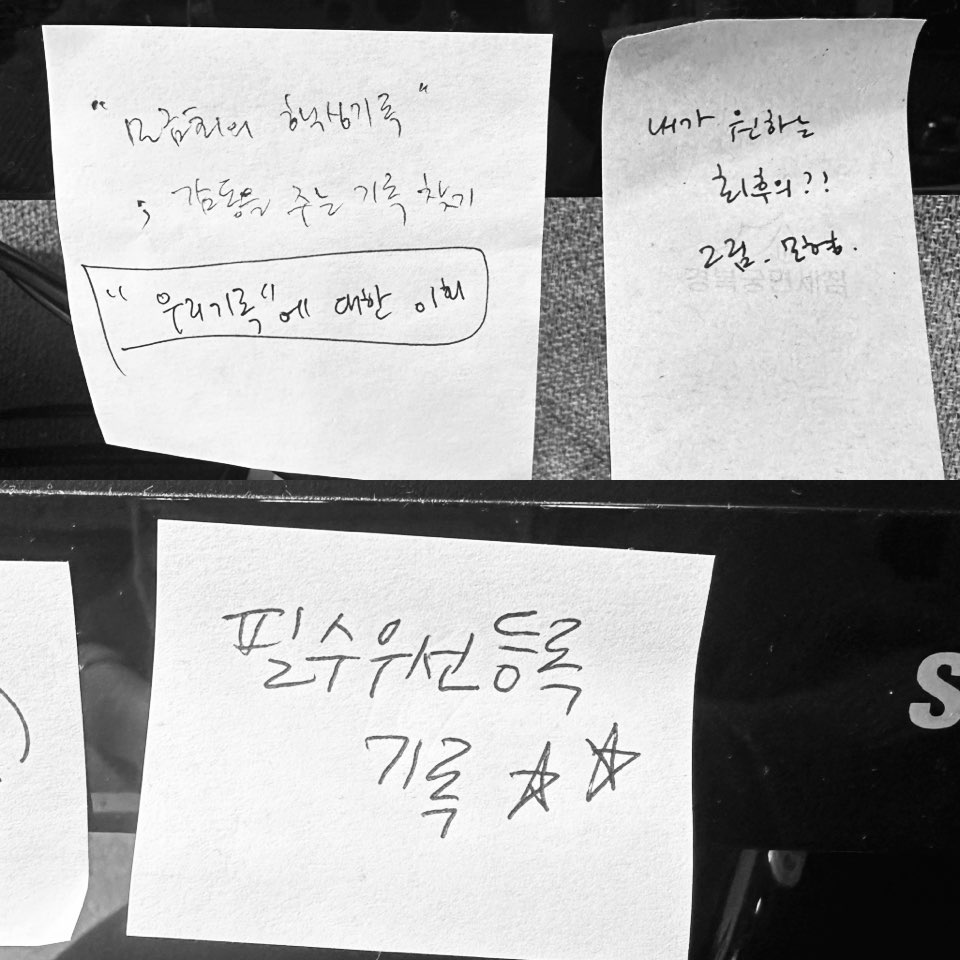 "모금회의 핵심기록"
; 감동을 주는 기록 찾기
"우리기록"에 대한 이회
내가 원하는
최후의??
그림. 모형.
필수우선등록
기록 ☆☆
S